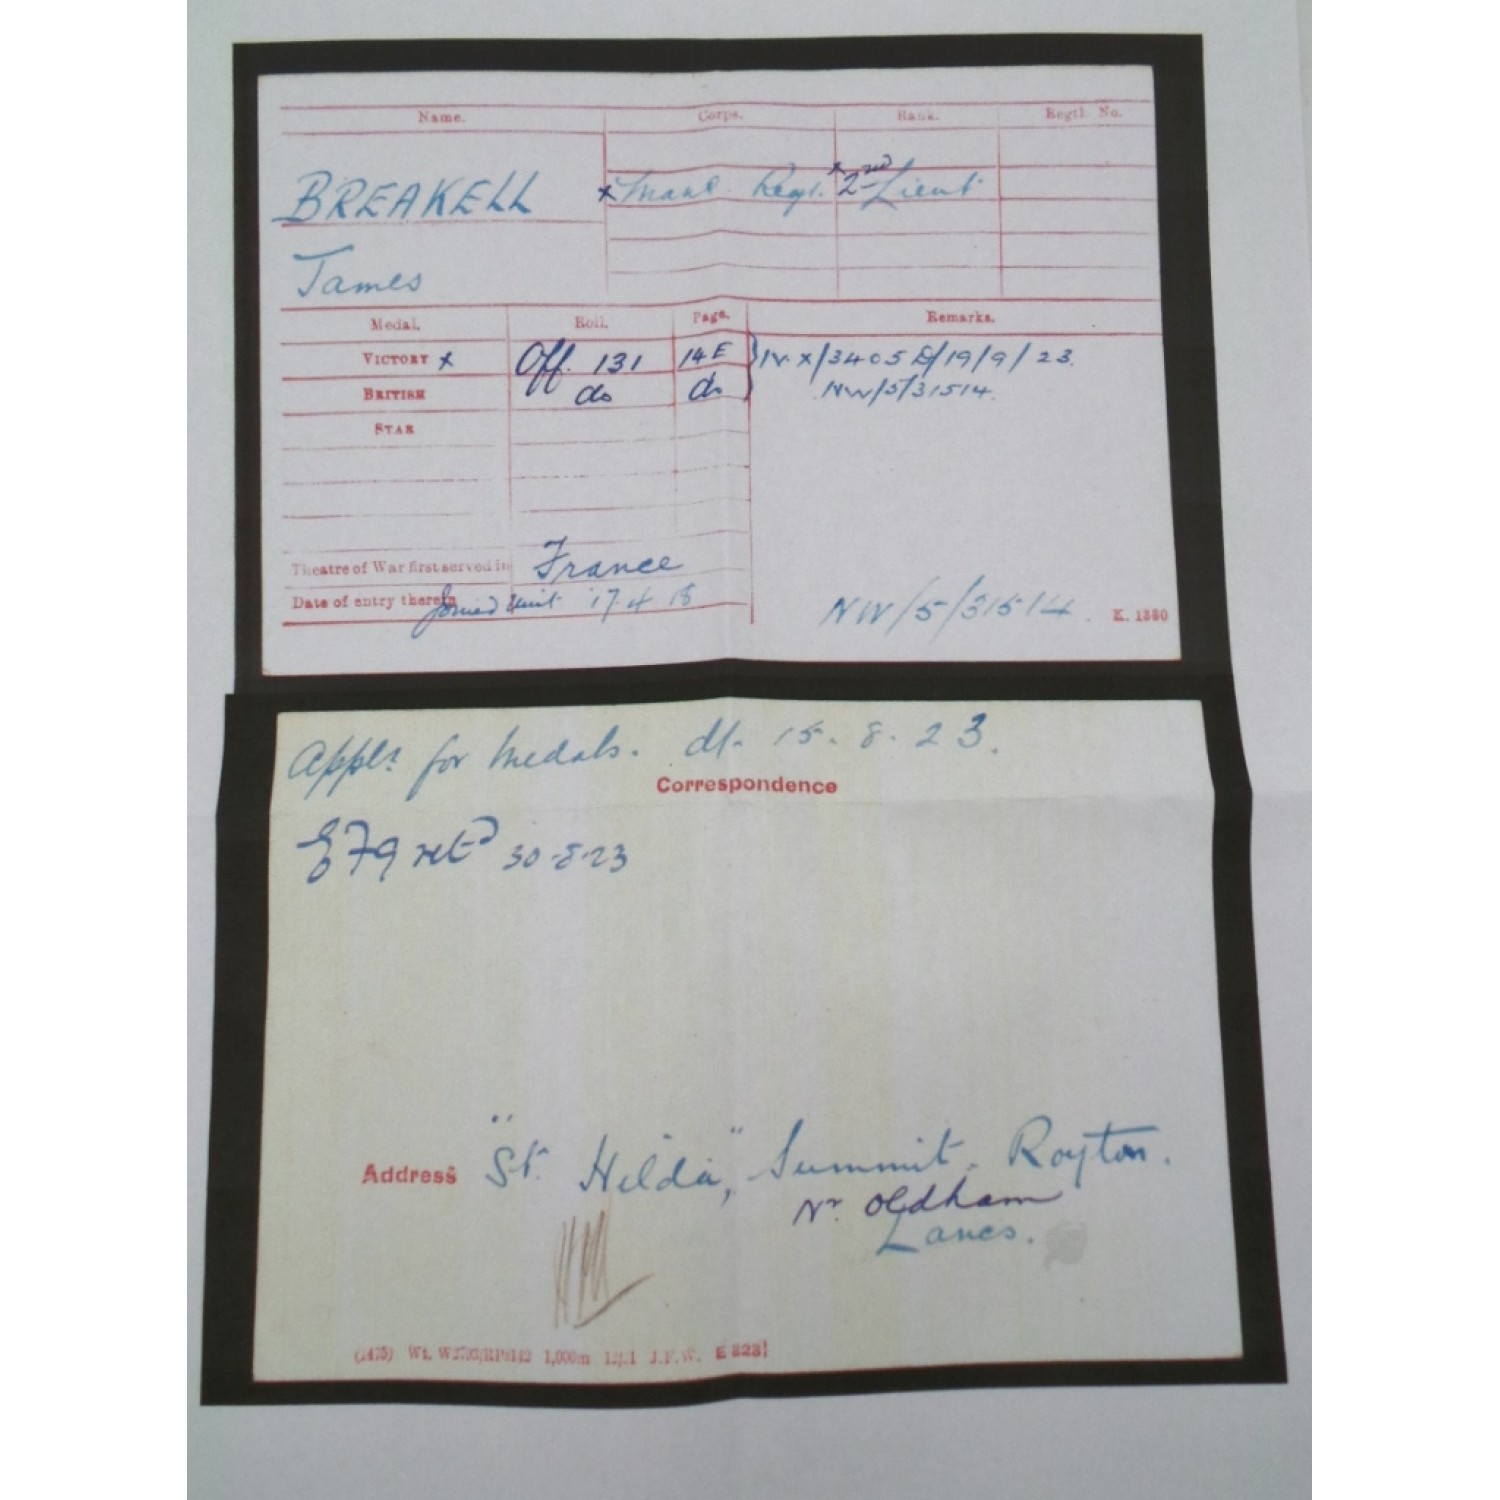 Name. Corps. Rank. Regtl. No.
BREAKELL x Manc. Regt. x 2nd Lieut
James
Medal. Roll. Page. Remarks.
VICTORY x Off. 131 14 E } IV. X/3405 D/19/9/23.
BRITISH do do NW/5/31514.
STAR
Theatre of War first served in France
Date of entry therein Joined Unit 17 4 18 NW/5/31514. K. 1380
Appln. for Medals. dt. 15.8.23.
Correspondence
E79 retd 30-8-23
Address "St. Hilda", Summit. Royton.
Nr. Oldham
Lancs.
1,000m J.F.W. E 823